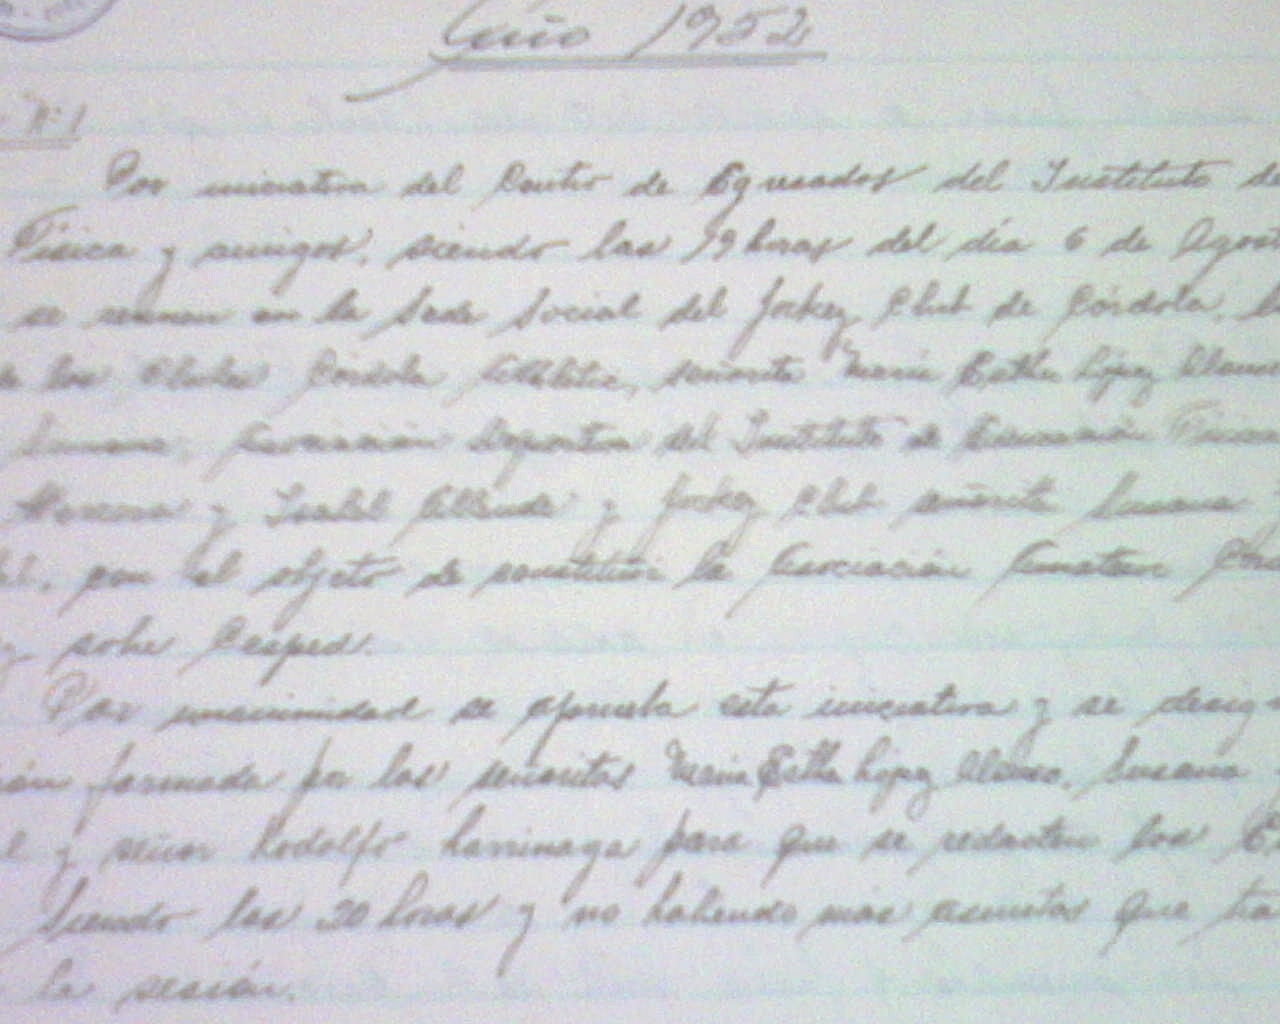 Año 1952
Nº 1
Por iniciativa del Centro de Egresados del Instituto de
Física y amigos, siendo las 19 horas del día 6 de Agost
se reunen en la Sede Social del Jockey Club de Córdoba,
de los Clubes Córdoba Athletic, señorita María Esther López Alonso
Susana, Asociación Deportiva del Instituto de Educación Física
Moreno y Isabel Allende y Jockey Club señorita Susana
con el objeto de constituir la Asociación Amateur
sobre Cesped.
Por unanimidad se aprueba esta iniciativa y se desig
ión formada por las señoritas María Esther López Alonso, Susana
l y señor Rodolfo Larrinaga para que se redacten los
Siendo las 20 horas y no habiendo más asuntos que tra
la sesión.